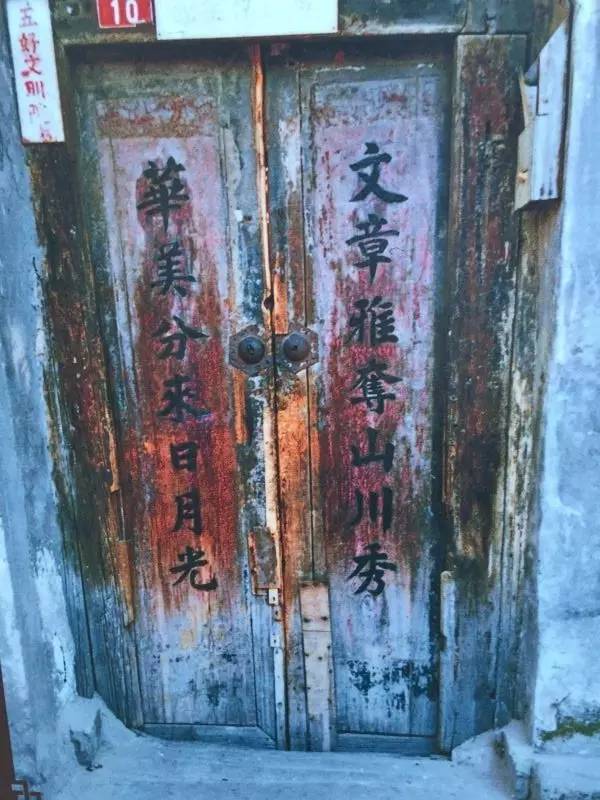 10
五好文明
文章雅奪山川秀
華美分來日月光